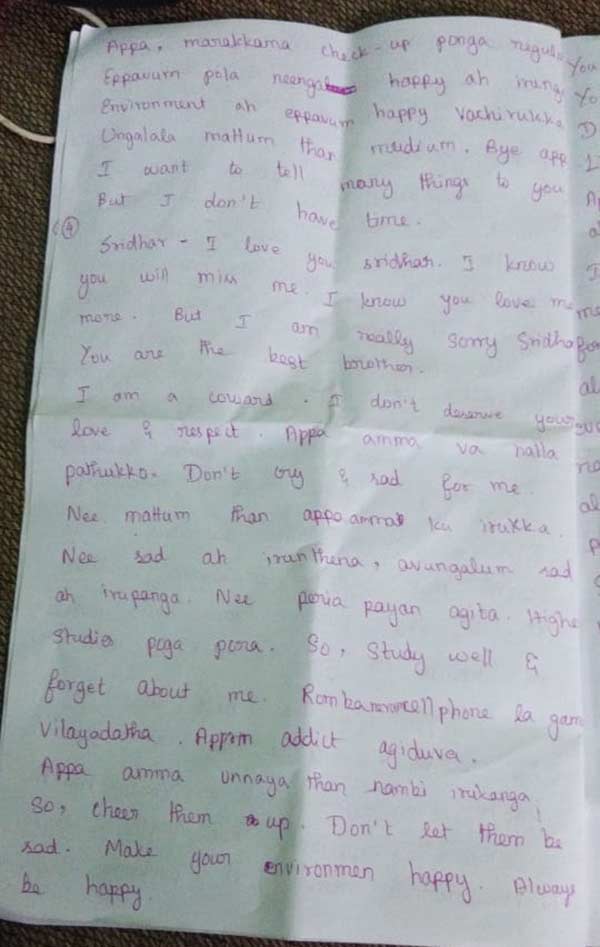 Appa, marakkama check-up ponga regul
Eppavum pola neengal happy ah irung
Environment ah eppavum happy vachirukka
Ungalala mattum than mudium. Bye app
I want to tell many things to you
But I don't have time.
④
Sridhar - I love you sridhar. I know
you will miss me. I know you love me
more. But I am really sorry Sridha
You are the best brother.
I am a coward. I don't deserve your
love & respect. Appa amma va nalla
pathukko. Don't cry & sad for me.
Nee mattum than appa ammak ku irukka.
Nee sad ah irunthena, avungalum sad
ah irupanga. Nee peria payan agita. Highe
Studies poga pora. So, Study well &
forget about me. Romba cellphone la gam
Vilayadatha. Apprm addict agiduva.
Appa amma unnaya than nambi irukanga,
So, cheer them up. Don't let them be
sad. Make your environmen happy. Always
be happy.